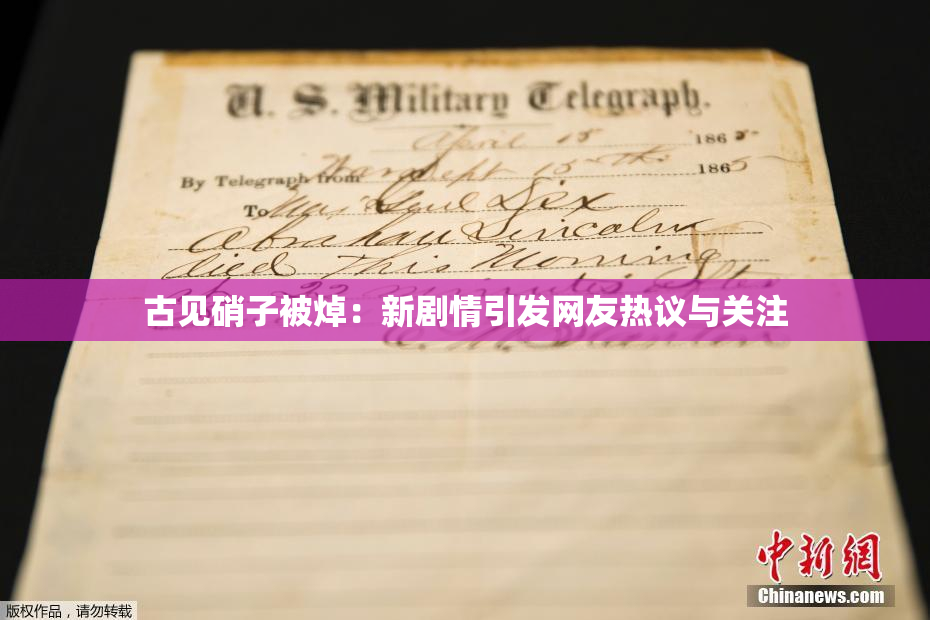 U. S. Military Telegraph.
April 15 1865
By Telegraph from War Dept 15th 1865
To Maj Genl Dix
Abraham Lincoln
died This Morning
at 22 minutes after
古见硝子被焯：新剧情引发网友热议与关注
E. M. Stanton
中新网
Chinanews.com
版权作品，请勿转载